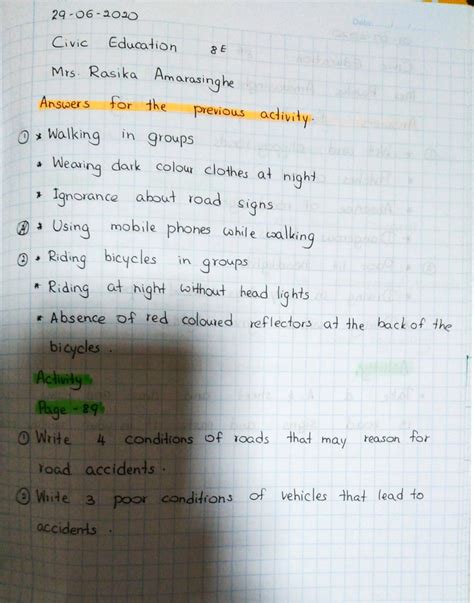 29-06-2020
Civic Education 8E
Mrs. Rasika Amarasinghe
Answers for the previous activity.
① * Walking in groups
* Wearing dark colour clothes at night
* Ignorance about road signs
* Using mobile phones while walking
② * Riding bicycles in groups
* Riding at night without head lights
* Absence of red coloured reflectors at the back of the
bicycles.
Activity
Page - 89
① Write 4 conditions of roads that may reason for
road accidents.
② Write 3 poor conditions of vehicles that lead to
accidents.